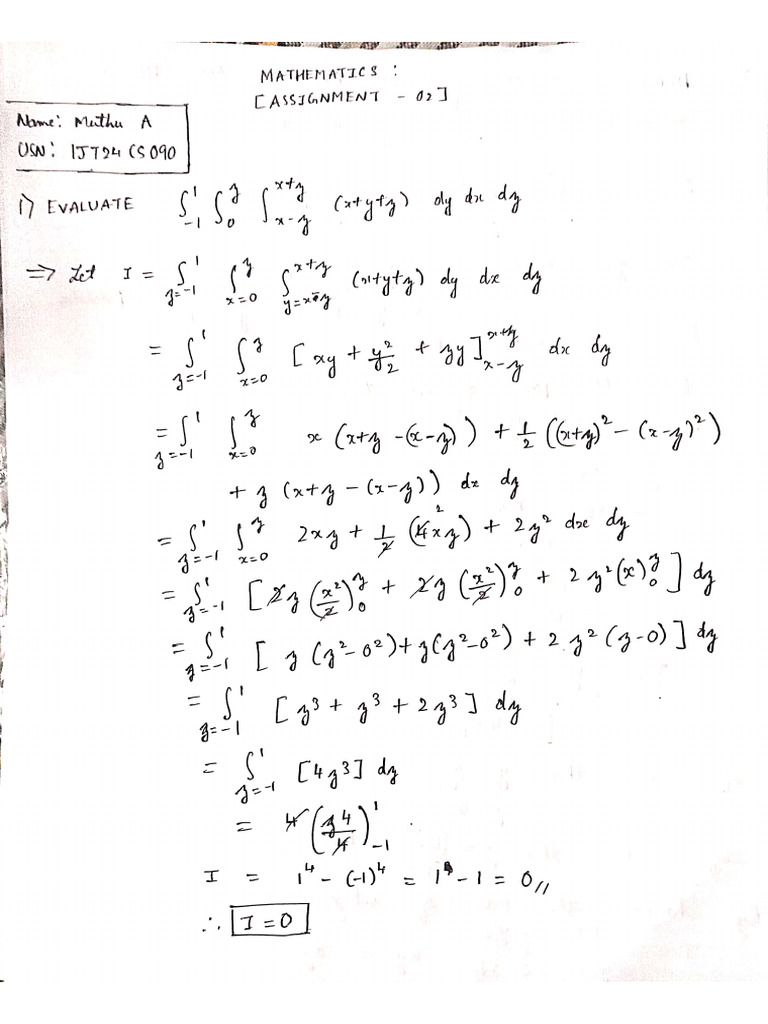 MATHEMATICS :
[ASSIGNMENT - 02]
Name: Muthu A
USN: 1JT24CS090
1) EVALUATE ∫₋₁¹ ∫₀ᶻ ∫_{x-z}^{x+z} (x+y+z) dy dx dz
⇒ Let I = ∫_{z=-1}^{1} ∫_{x=0}^{z} ∫_{y=x-z}^{x+z} (x+y+z) dy dx dz
= ∫_{z=-1}^{1} ∫_{x=0}^{z} [xy + y²/2 + zy]_{x-z}^{x+z} dx dz
= ∫_{z=-1}^{1} ∫_{x=0}^{z} x (x+z -(x-z)) + 1/2 ((x+z)² - (x-z)²)
+ z (x+z - (x-z)) dx dz
= ∫_{z=-1}^{1} ∫_{x=0}^{z} 2xz + 1/2 (4xz) + 2z² dx dz
= ∫_{z=-1}^{1} [2z (x²/2)₀ᶻ + 2z (x²/2)₀ᶻ + 2z² (x)₀ᶻ] dz
= ∫_{z=-1}^{1} [z (z²-0²) + z(z²-0²) + 2z² (z-0)] dz
= ∫_{z=-1}^{1} [z³ + z³ + 2z³] dz
= ∫_{z=-1}^{1} [4z³] dz
= 4 (z⁴/4)₋₁¹
I = 1⁴ - (-1)⁴ = 1⁴ - 1 = 0//
∴ I = 0